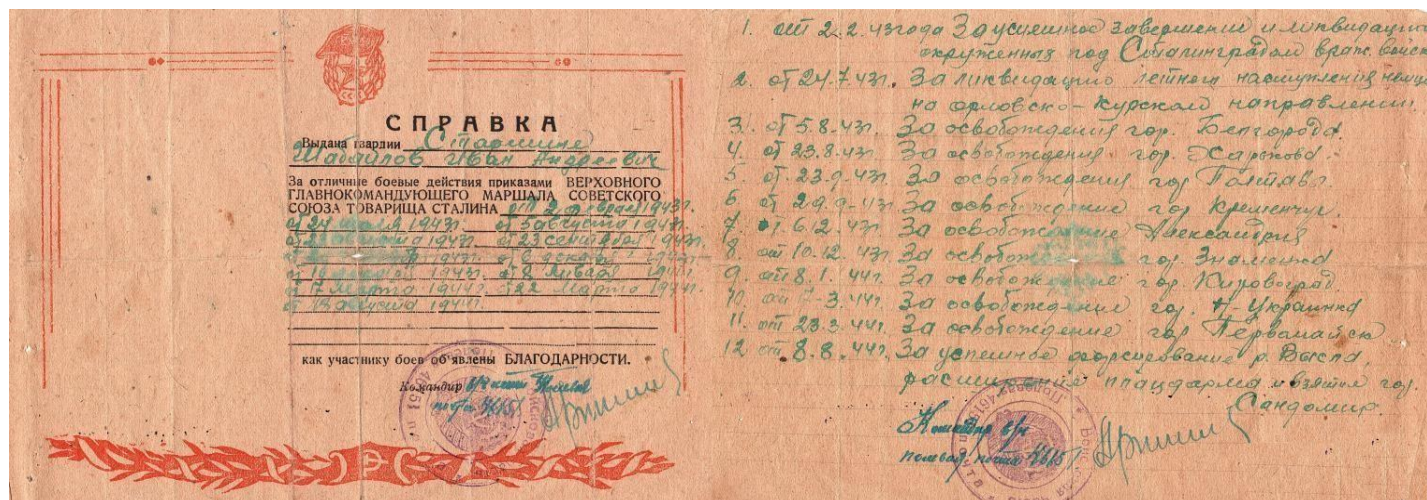 СПРАВКА
Выдана гвардии Старшине
Шабайлов Иван Андреевич
За отличные боевые действия приказами ВЕРХОВНОГО
ГЛАВНОКОМАНДУЮЩЕГО МАРШАЛА СОВЕТСКОГО
СОЮЗА ТОВАРИЩА СТАЛИНА от 2 февраля 1943г.
от 24 июля 1943г. от 5 августа 1943г.
от 23 августа 1943г. от 23 сентября 1943г.
от 6 декабря 1943г.
от 10 декабря 1943г. от 8 января 1944г.
от 17 Марта 1944г. от 22 Марта 1944г.
от 18 августа 1944г.
как участнику боев об'явлены БЛАГОДАРНОСТИ.
Командир в/части Полевая
почта 46151
1. от 2.2.43 года За успешное завершение и ликвидацию
окруженных под Сталинградом враж. войск
2. от 24.7.43г. За ликвидацию летнего наступления немцев
на орловско-Курском направлении
3. от 5.8.43г. За освобождения гор. Белгорода.
4. от 23.8.43г. За освобождения гор. Харькова.
5. от 23.9.43г. За освобождения гор Полтава
6 от 29.9.43г За освобождение гор Кременчуг.
7. от 6.12.43г. За освобождение Александрия
8. от 10.12.43г. За освобождение гор. Знаменка
9. от 8.1.44г. За освобождение гор. Кировоград
10. от 3.44г. За освобождение гор. Н-Украинка
11. от 23.3.44г. За освобождение гор Первомайск
12 от 8.8.44г. За успешное форсирование р. Висла,
расширение плацдарма и взятие гор.
Сандомир.
Командир в/ч
полевая почта 46151